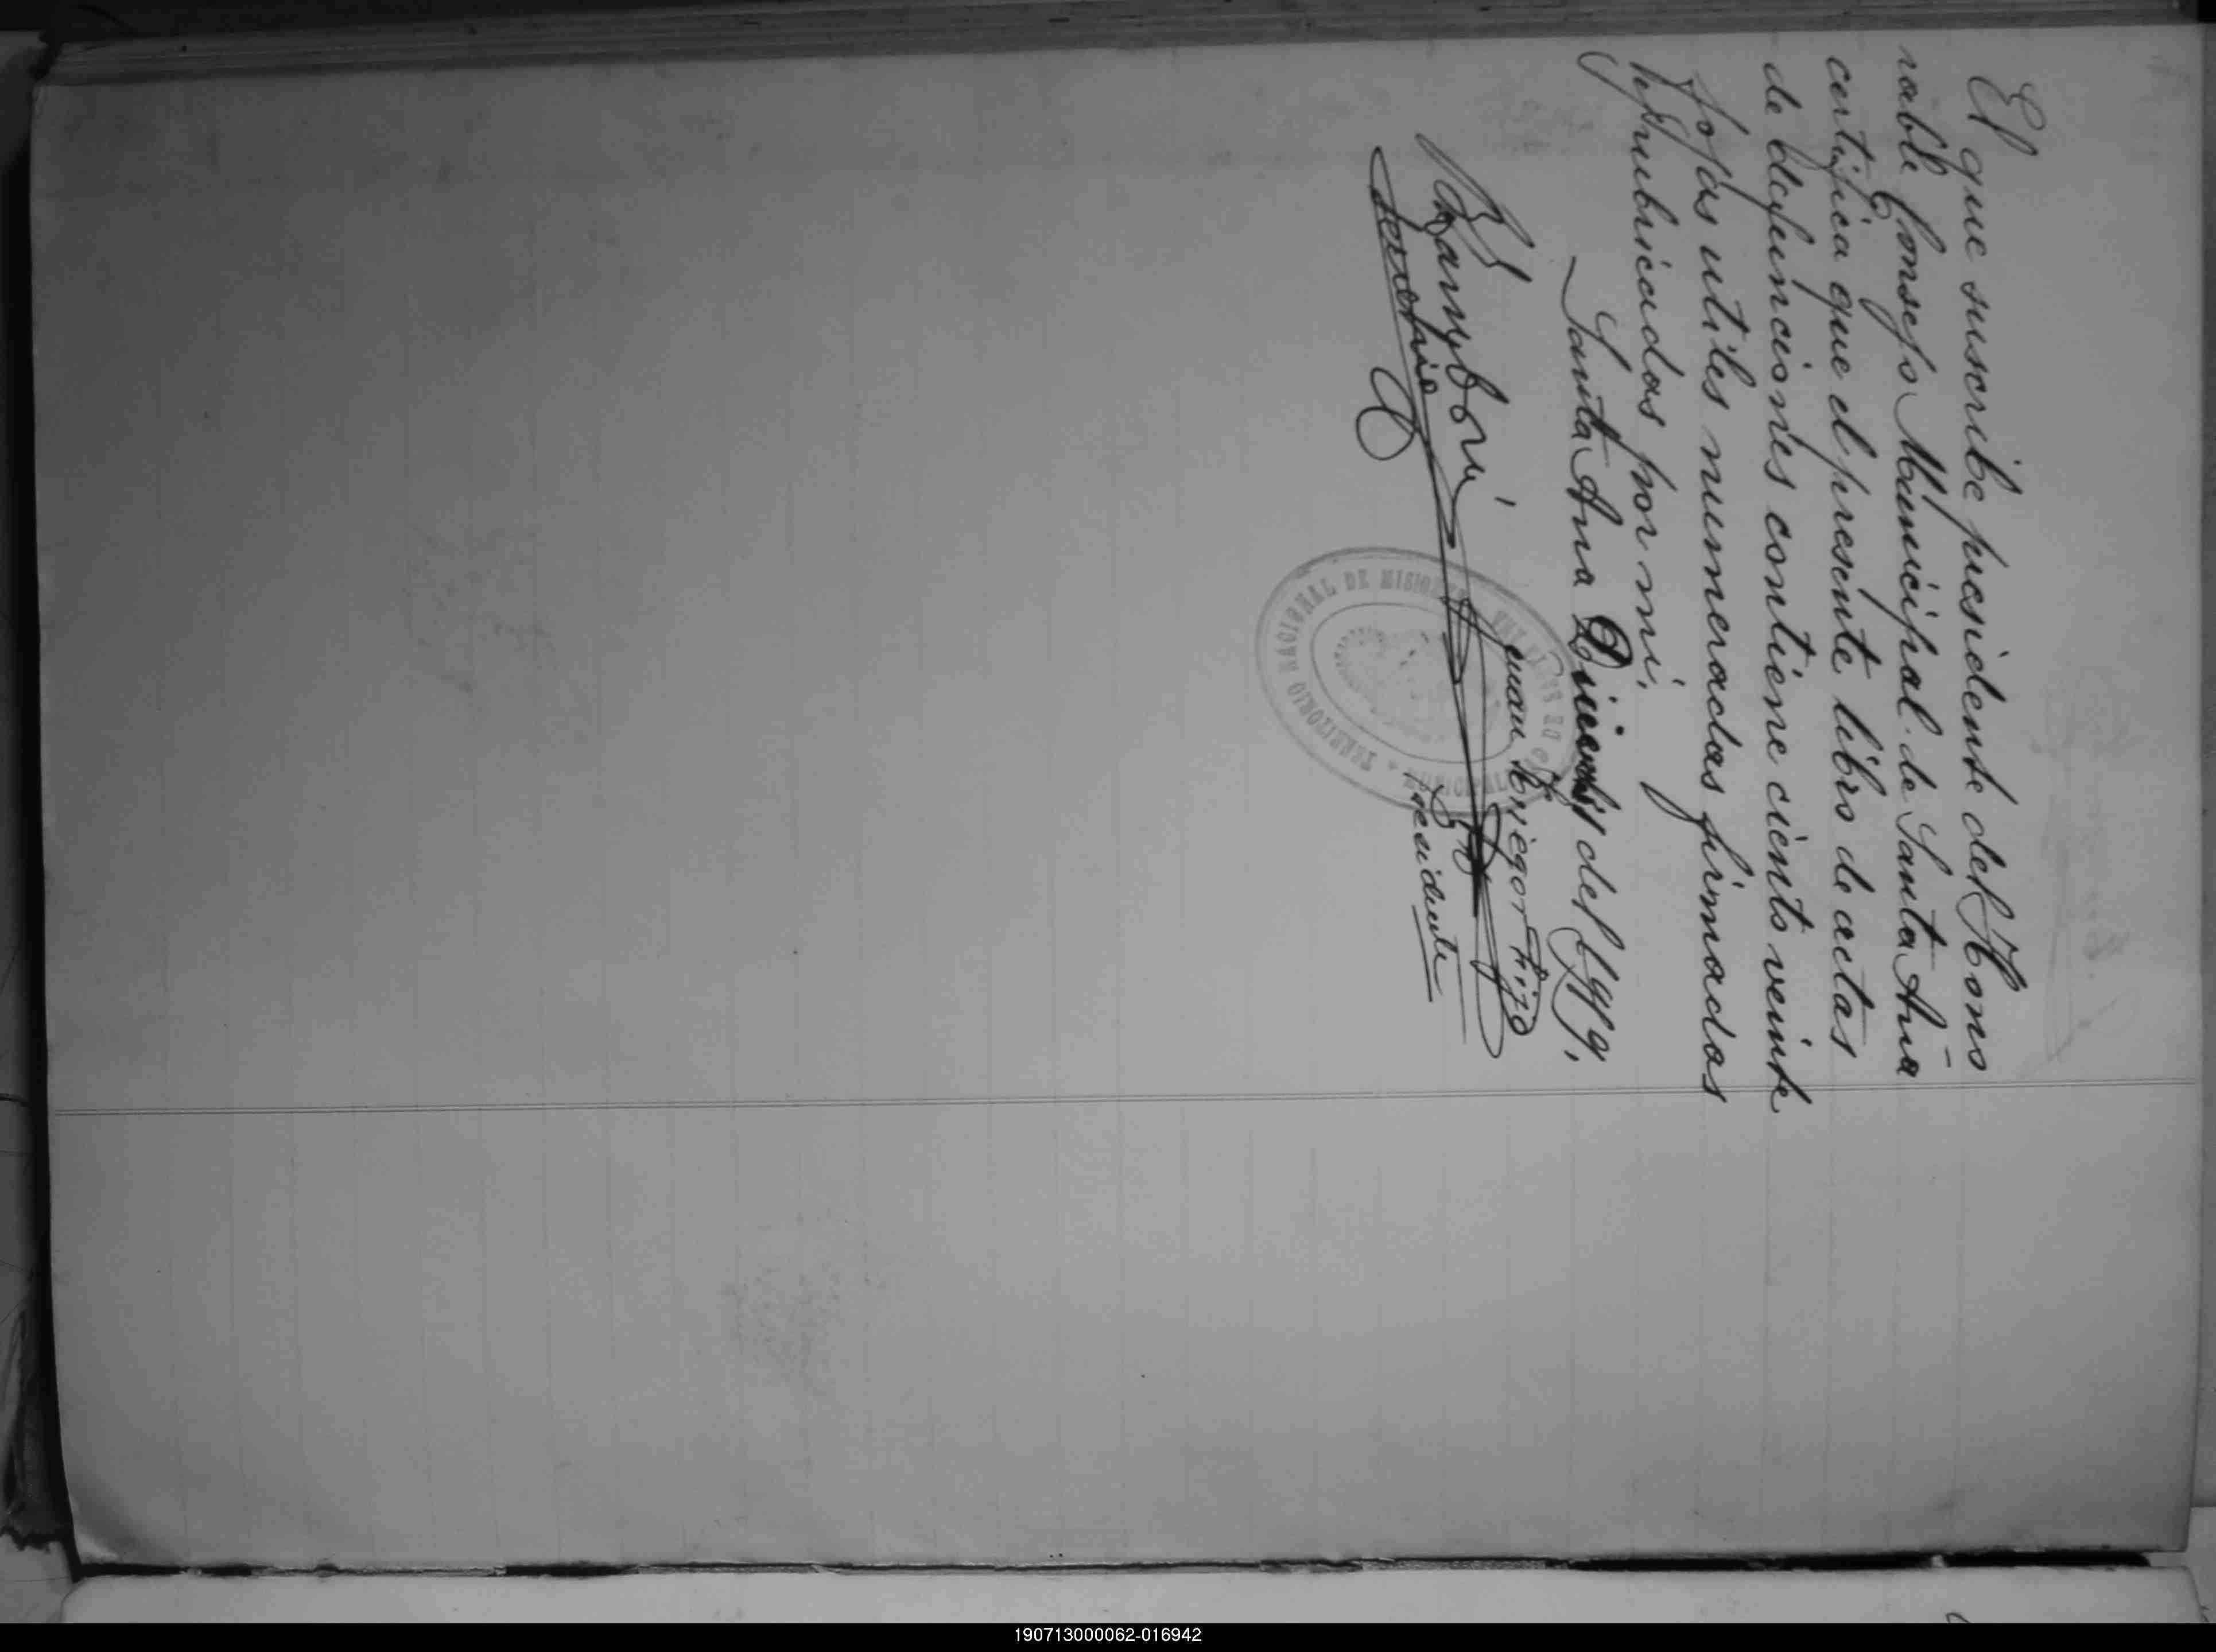 El que suscribe presidente del Hono
rable Consejo Municipal de Santa Ana
certifica que el presente libro de actas
de defunciones contiene ciento veinte
fojas utiles numeradas firmadas
y rubricadas por mi.
Santa Ana Diciembre del 1919.
Juan
Presidente
Secretario
TERRITORIO NACIONAL DE MISIONES
MUNICIPALIDAD
190713000062-016942